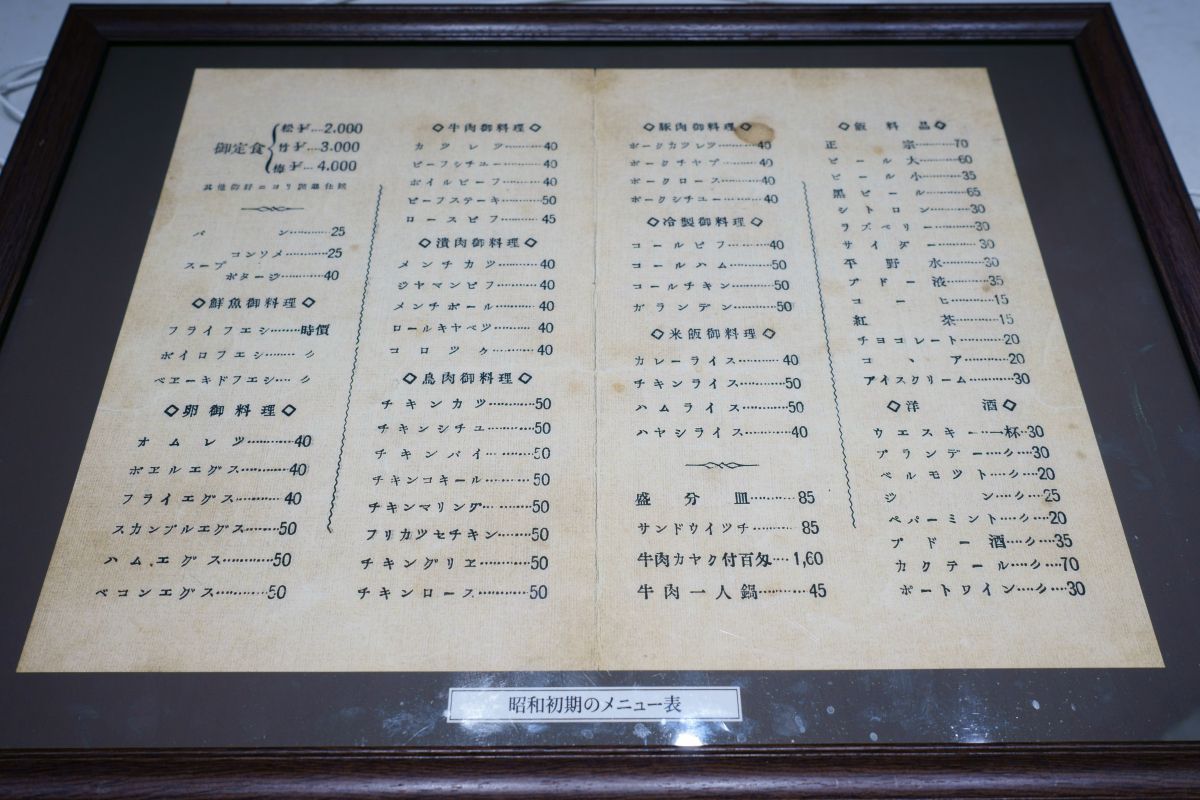 御定食
松ギ…2.000
竹ギ…3.000
梅ギ…4.000
其他御好ニヨリ調進仕候
パン…………25
スープ
コンソメ…………25
ポタージ…………40
◇鮮魚御料理◇
フライフエシ………時價
ボイロフエシ………〃
ベエーキドフエシ…〃
◇卵御料理◇
オムレツ…………40
ボエルエグス…………40
フライエグス…………40
スカンブルエグス…………50
ハムエグス…………50
ベコンエグス…………50
◇牛肉御料理◇
カツレツ…………40
ビーフシチユー…………40
ボイルビーフ…………40
ビーフステーキ…………50
ロースビフ…………45
◇潰肉御料理◇
メンチカツ…………40
ジヤマンビフ…………40
メンチボール…………40
ロールキヤベツ…………40
コロツケ…………40
◇鳥肉御料理◇
チキンカツ…………50
チキンシチユ…………50
チキンパイ…………50
チキンコキール…………50
チキンマリング…………50
フリカツセチキン…………50
チキングリエ…………50
チキンロース…………50
◇豚肉御料理◇
ポークカツレツ…………40
ポークチヤプ…………40
ポークロース…………40
ポークシチユー…………40
◇冷製御料理◇
コールビフ…………40
コールハム…………50
コールチキン…………50
ガランデン…………50
◇米飯御料理◇
カレーライス…………40
チキンライス…………50
ハムライス…………50
ハヤシライス…………40
盛分皿…………85
サンドウイツチ…………85
牛肉カヤク付百匁…1,60
牛肉一人鍋…………45
◇飯料品◇
正宗…………70
ビール大…………60
ビール小…………35
黒ビール…………65
シトロン…………30
ラズベリー…………30
サイダー…………30
平野水…………30
ブドー液…………35
コーヒ…………15
紅茶…………15
チョコレート…………20
コヽア…………20
アイスクリーム…………30
◇洋酒◇
ウエスキー…一杯…30
ブランデー…〃…30
ベルモツト…〃…20
ジン…〃…25
ペパーミント…〃…20
ブドー酒…〃…35
カクテール…〃…70
ポートワイン…〃…30
昭和初期のメニュー表